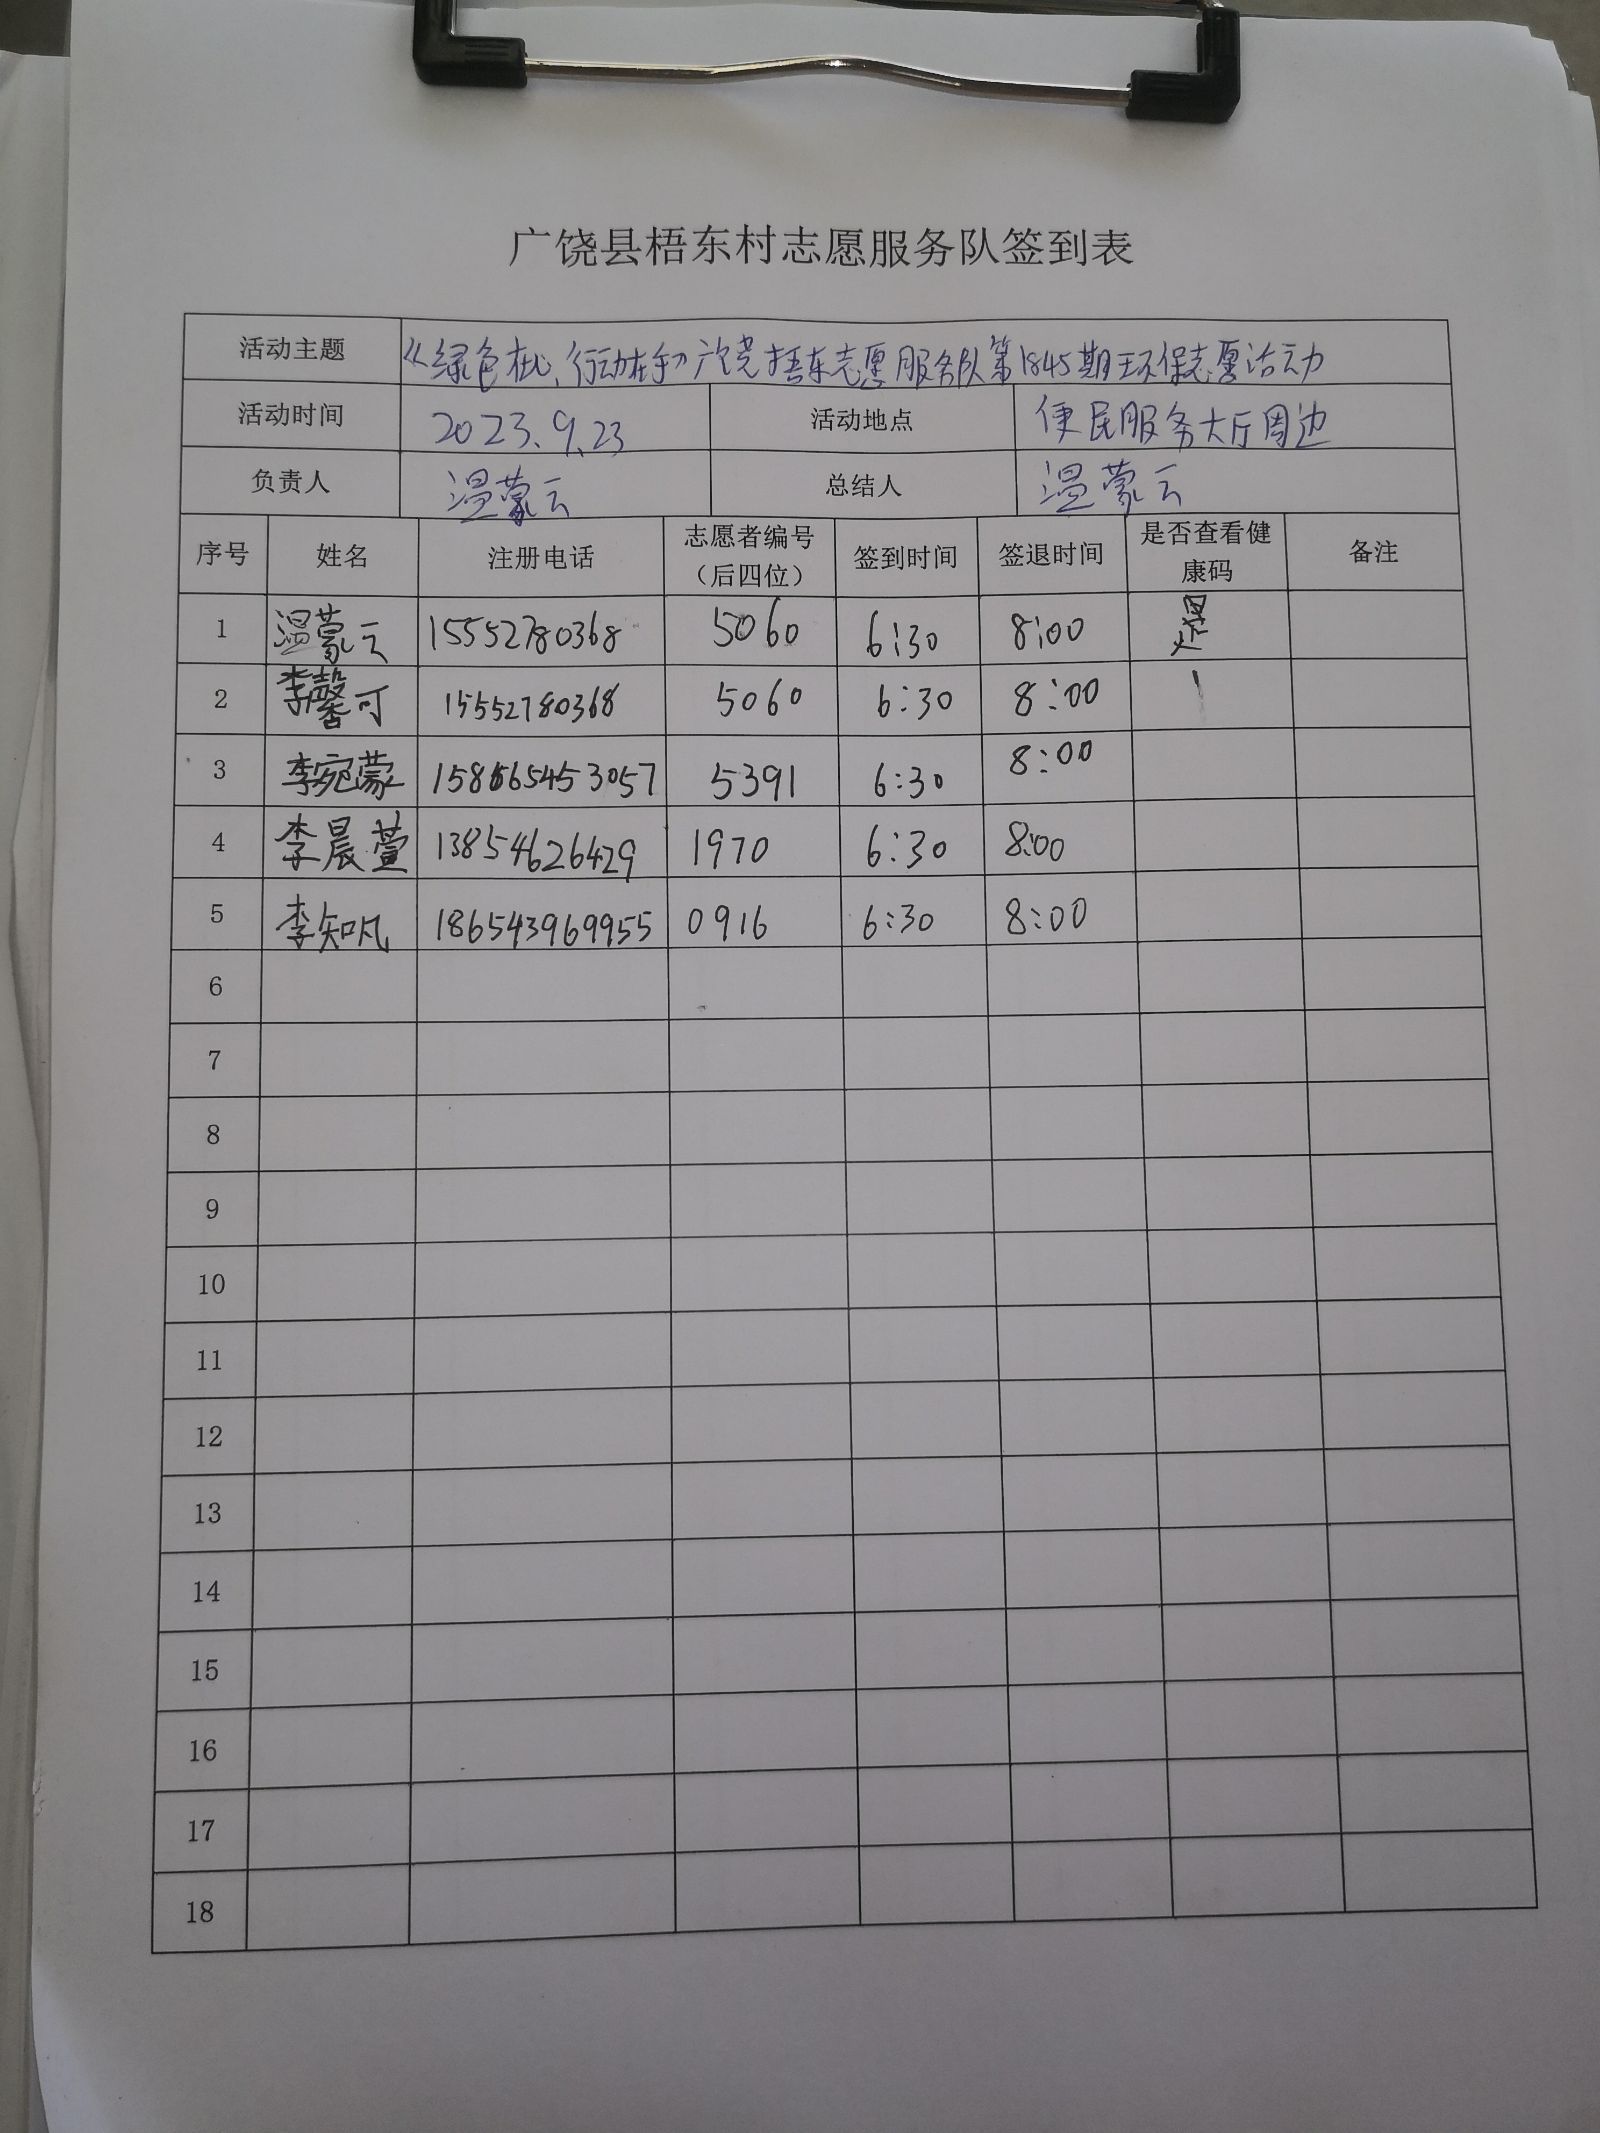 广饶县梧东村志愿服务队签到表
活动主题 《绿色在心、行动在手》广饶梧东志愿服务队第1845期环保志愿活动
活动时间 2023.9.23 活动地点 便民服务大厅周边
负责人 温蒙云 总结人 温蒙云
序号 姓名 注册电话 志愿者编号（后四位） 签到时间 签退时间 是否查看健康码 备注
1 温蒙云 15552780368 5060 6:30 8:00
2 李馨可 15552780368 5060 6:30 8:00
3 李宛蒙 5391 6:30 8:00
4 李晨萱 13854626429 1970 6:30 8:00
5 李知凡 186543969955 0916 6:30 8:00
6
7
8
9
10
11
12
13
14
15
16
17
18